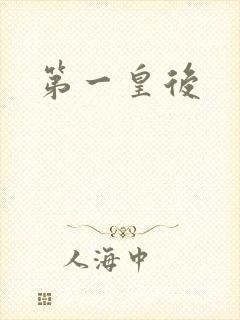 第一皇後
人海中